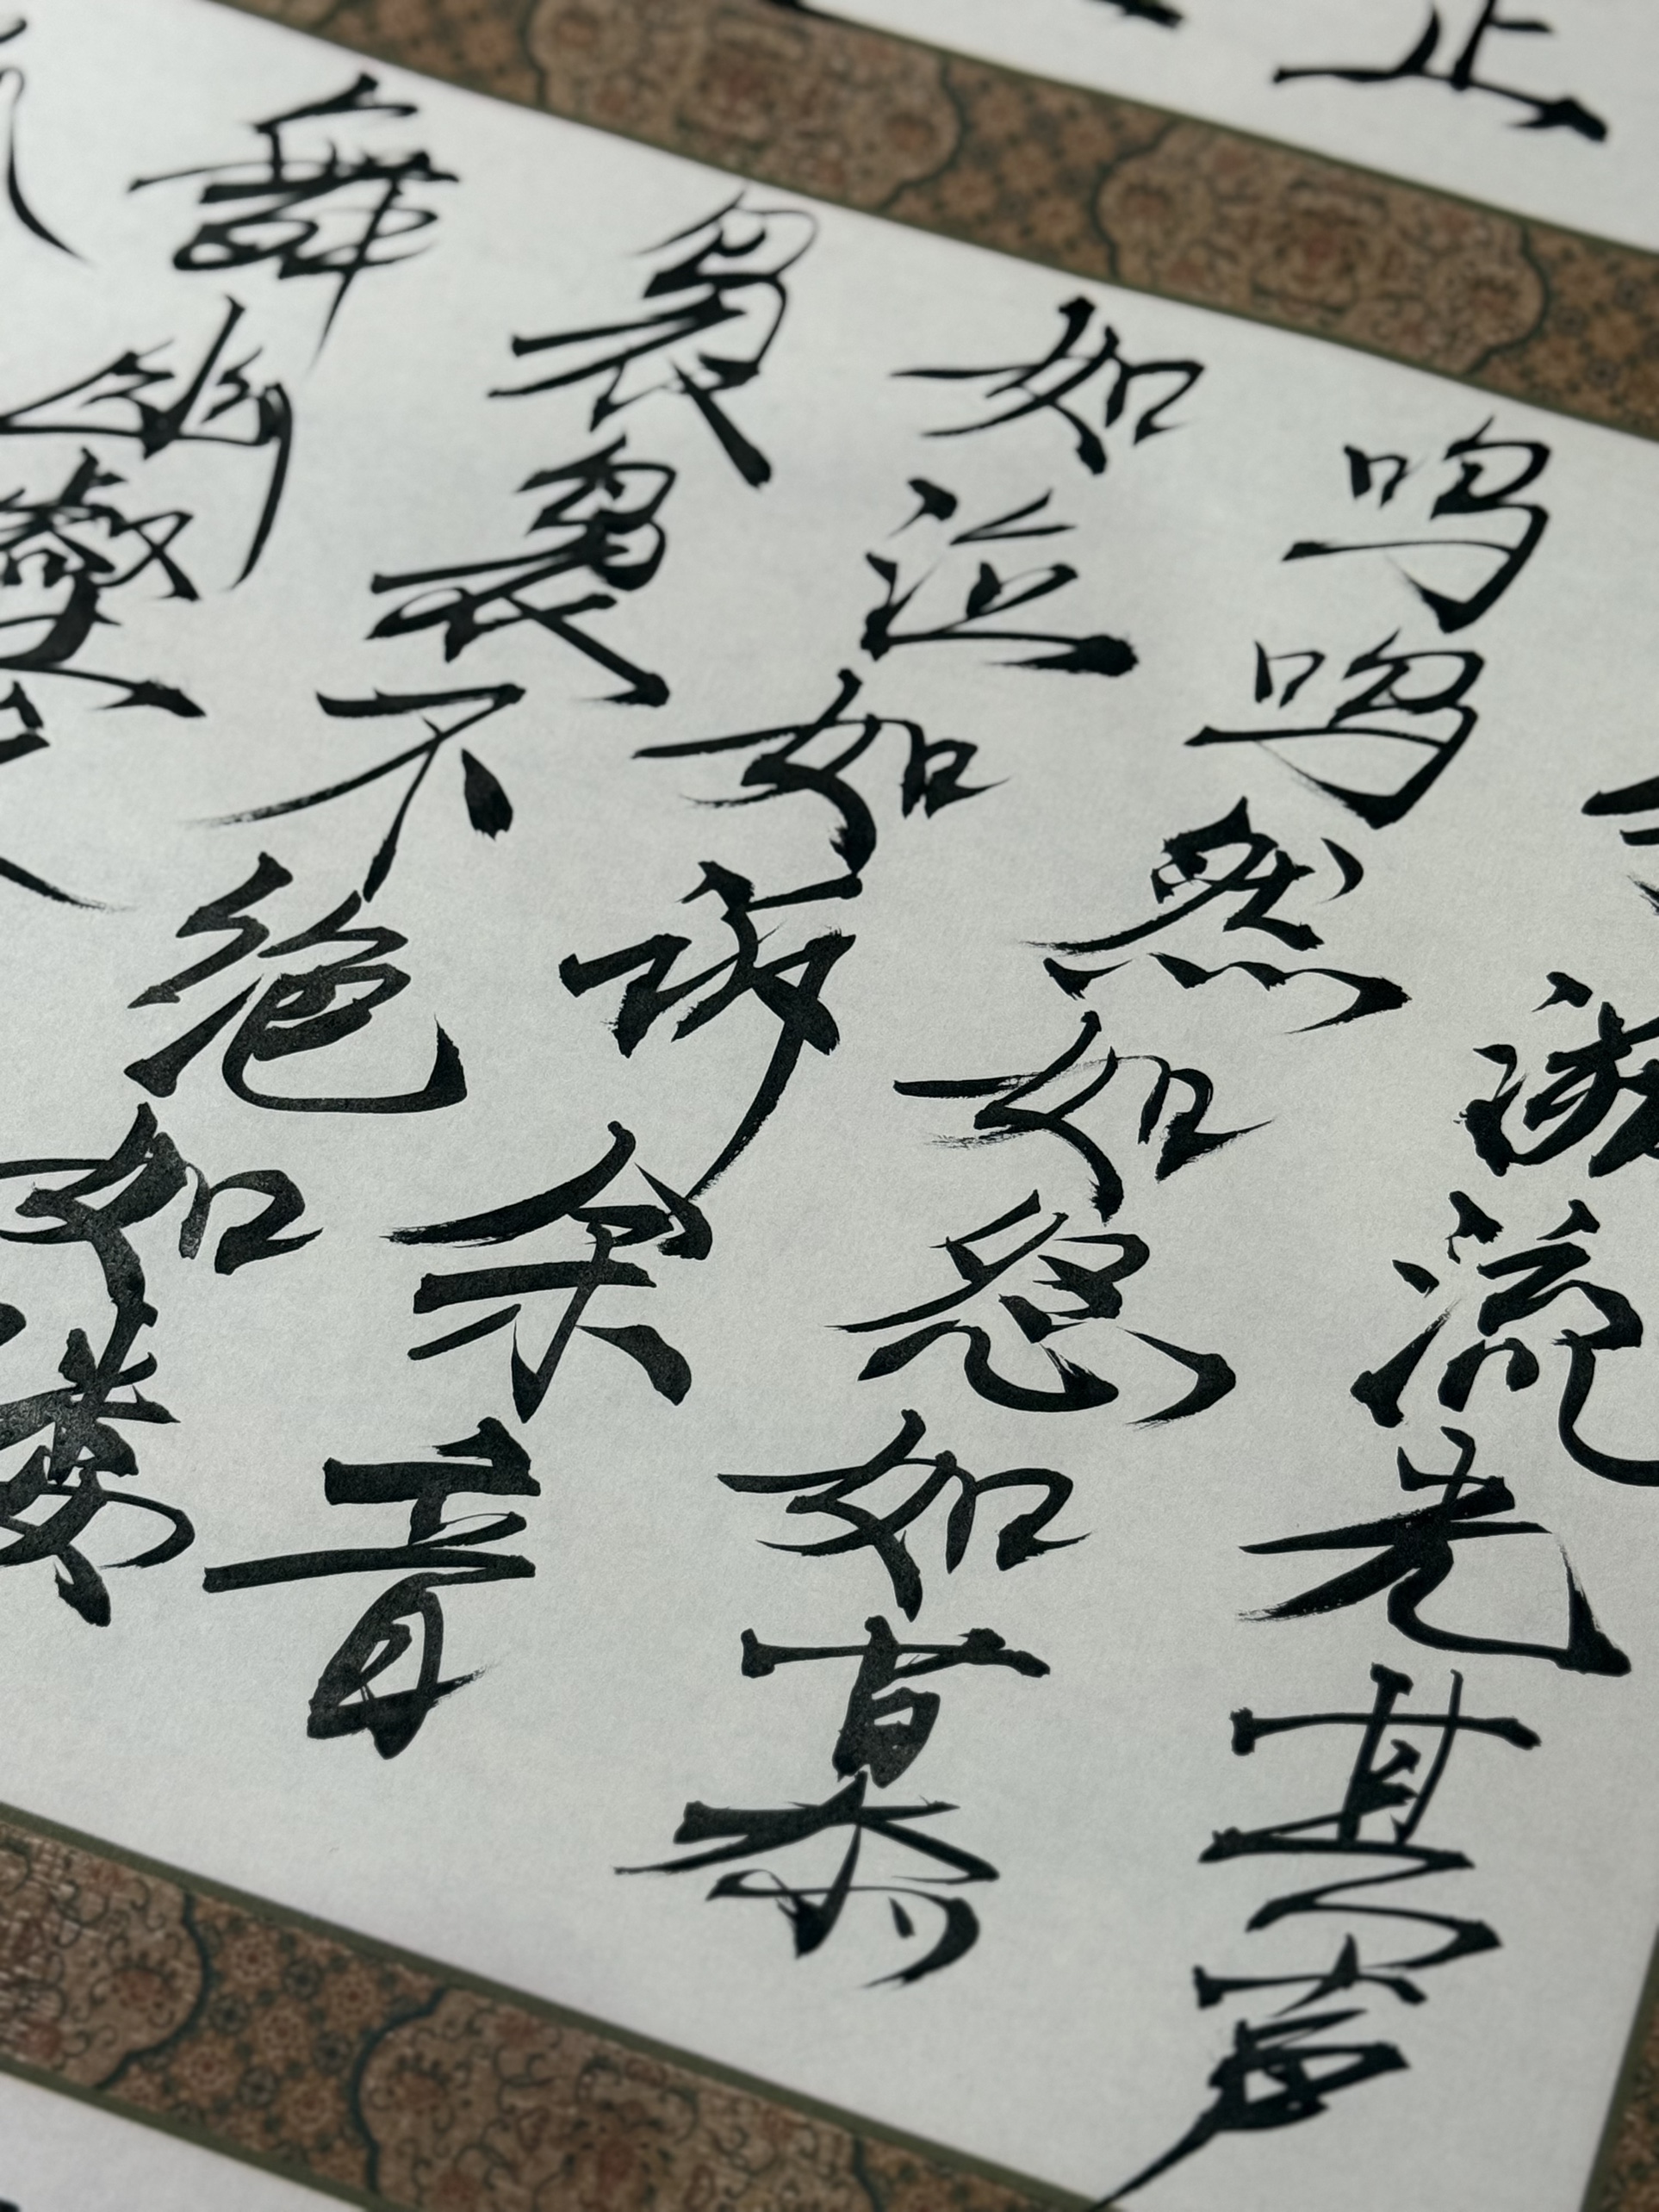 止
溯流光其声
呜呜然如怨如慕
如泣如诉余音
袅袅不绝如缕
舞幽壑